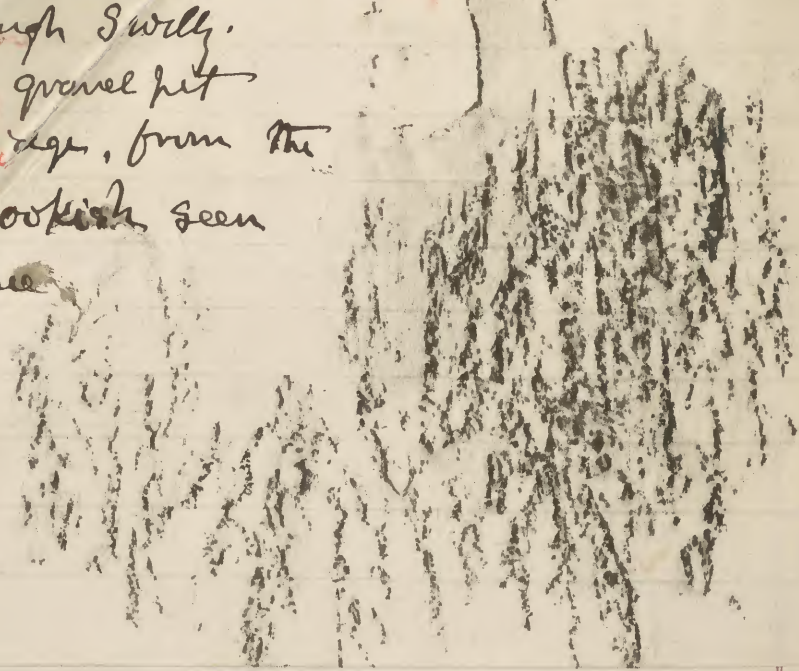 ugh Swilly.
gravel pit
from the
ookish seen